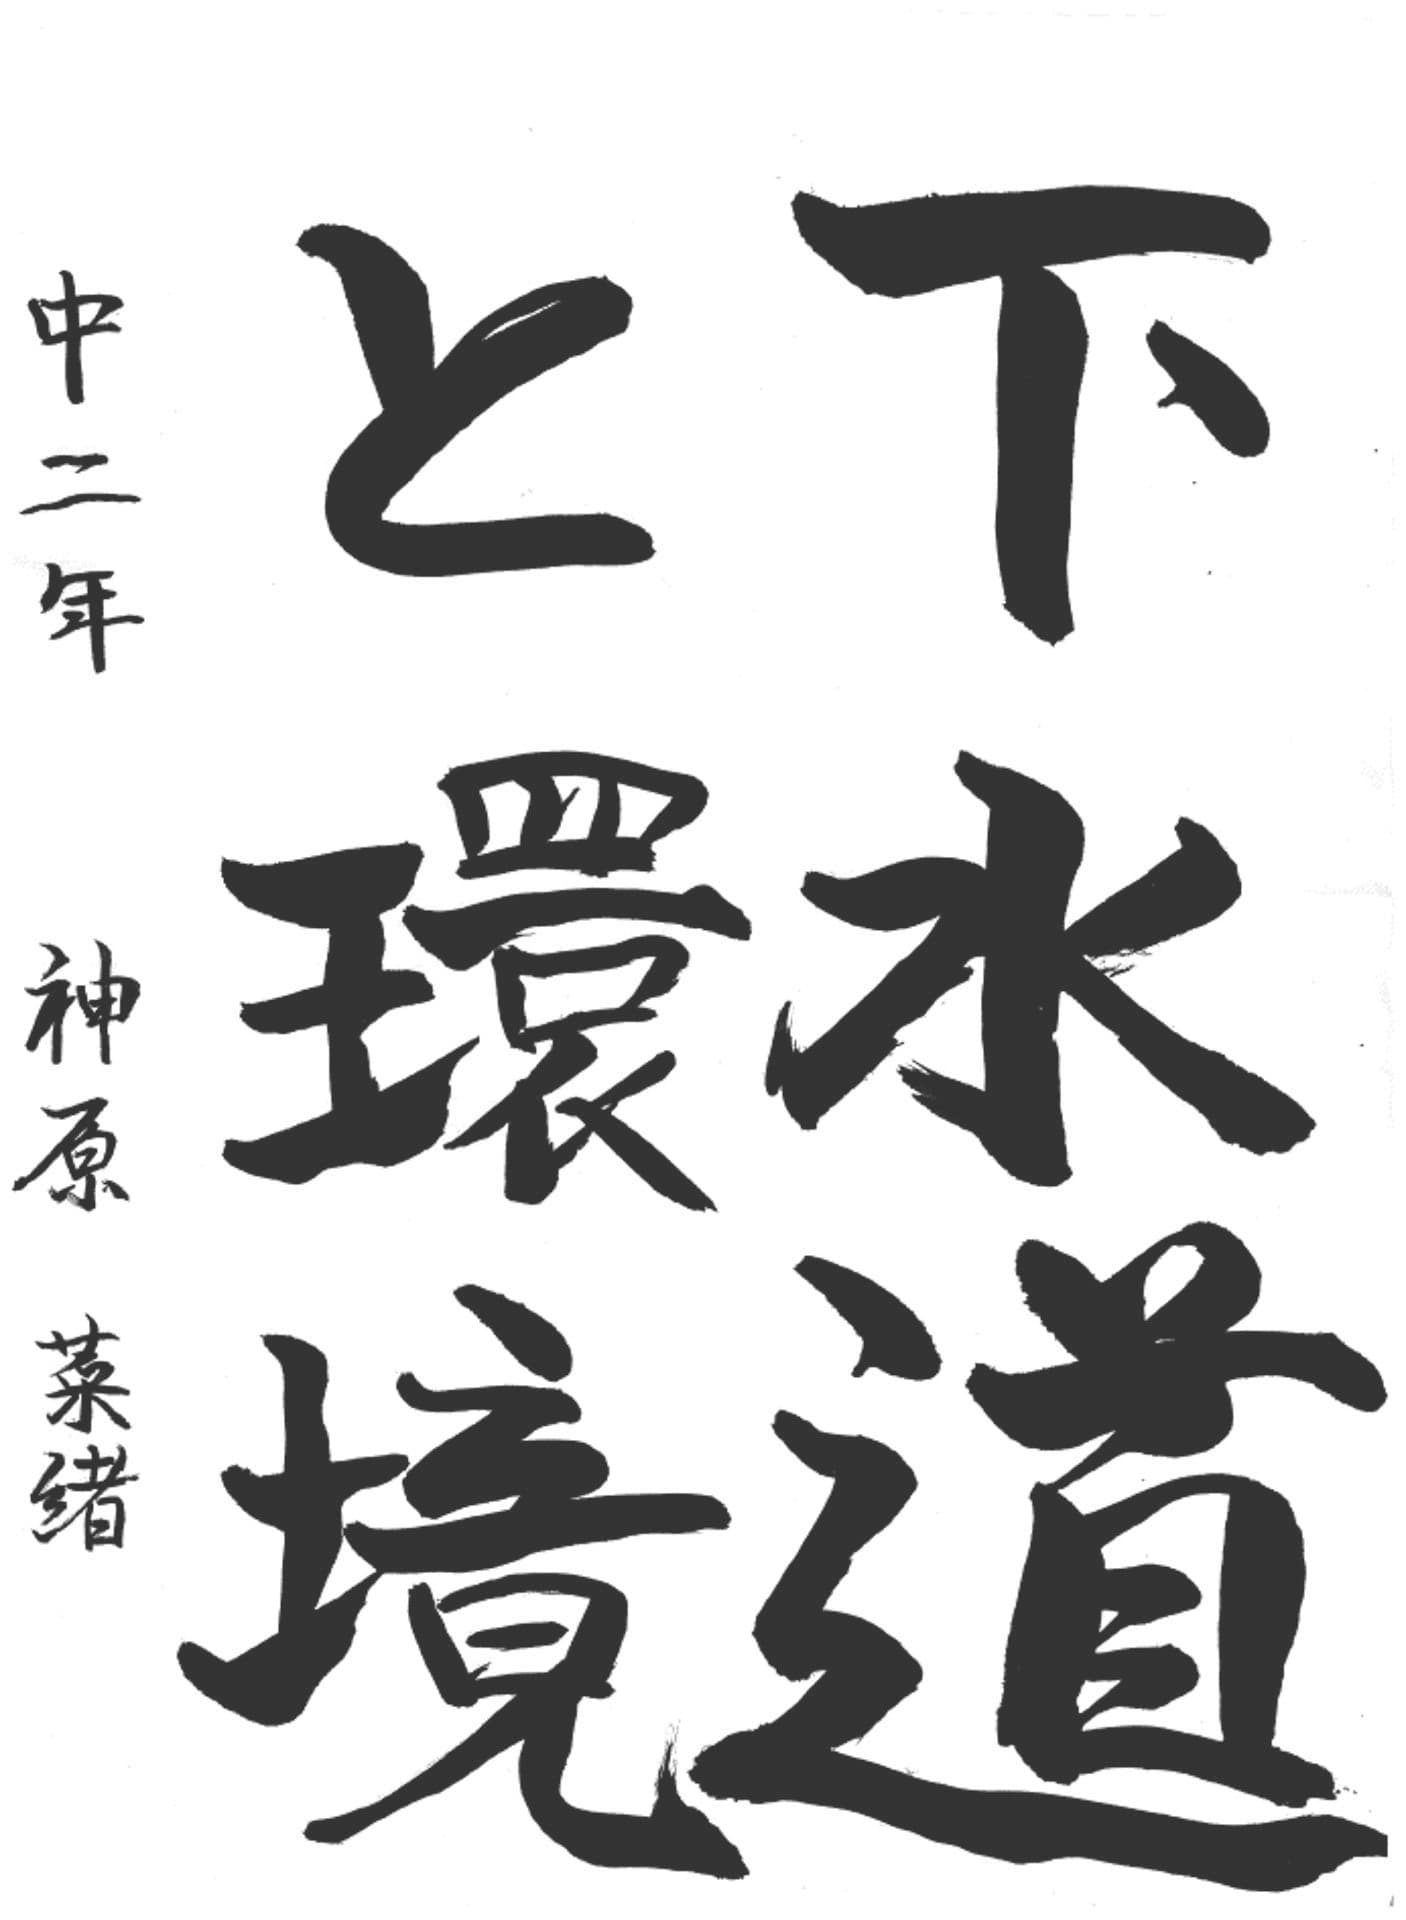 下水道
と環境
中二年 神原 菜緒